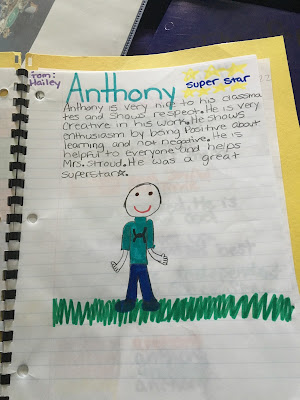 From:
Hailey
Anthony
super star
Anthony is very nice to his classma
tes and shows respect. He is very
creative in his work. He shows
enthusiasm by being positive about
learning and not negative. He is
helpful to everyone and helps
Mrs. Stroud. He was a great
superstar.